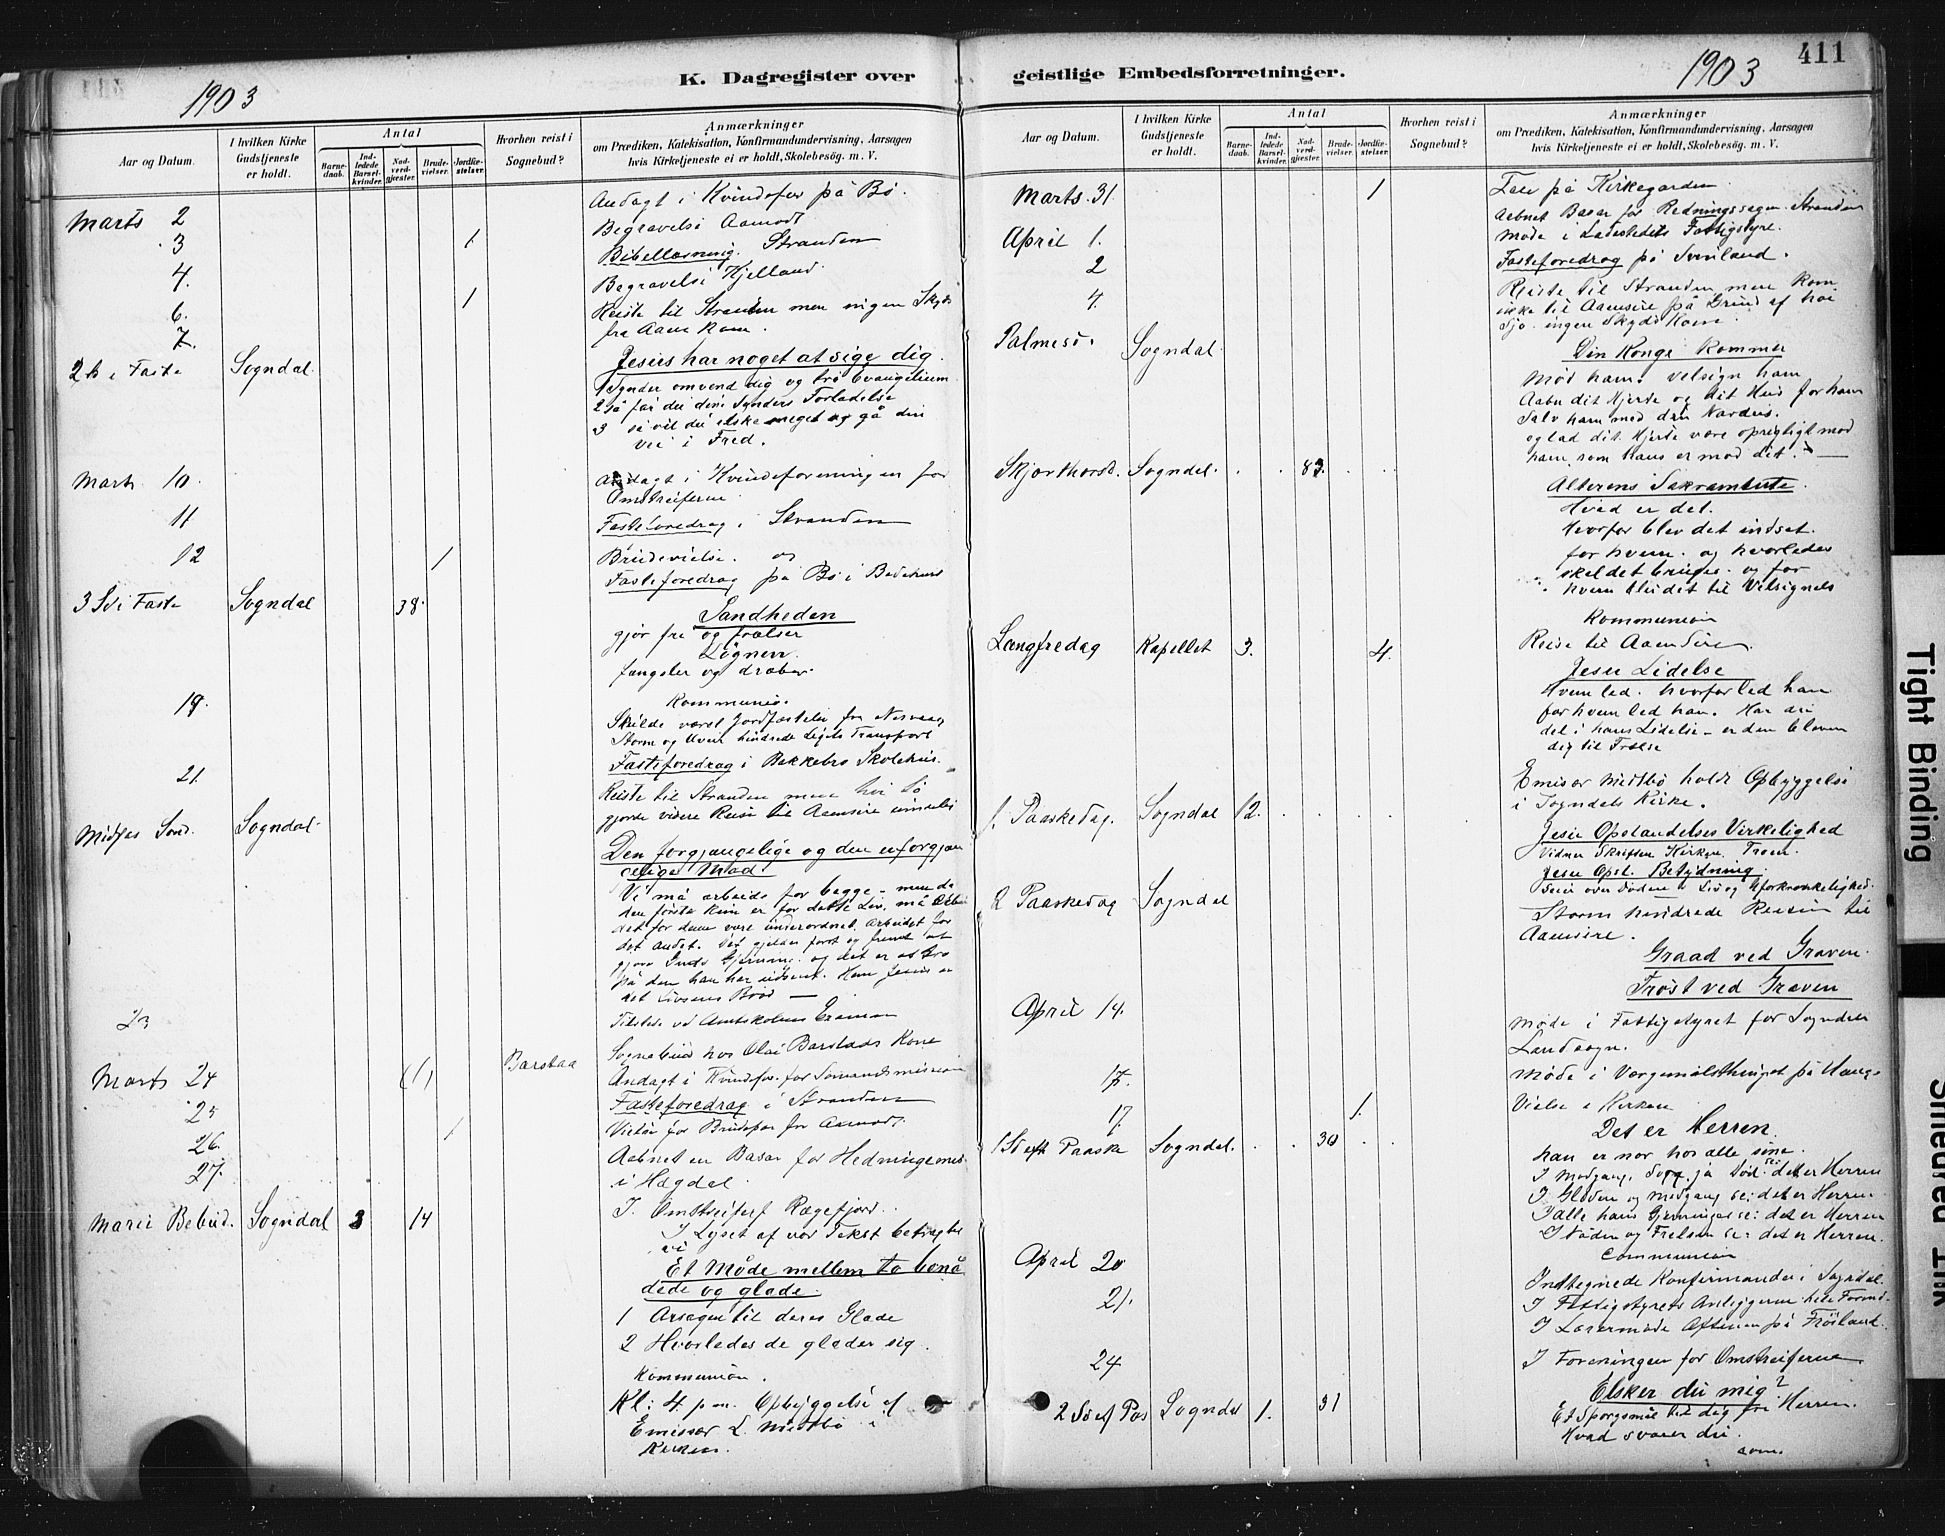 K. Dagregister over geistlige Embedsforretninger.
411
1903
1903
Aar og Datum.
I hvilken Kirke Gudstjeneste er holdt.
Antal
Barnedaab.
Indledede Barselkvinder.
Nadverdgjester.
Brudevielser.
Jordfæstelser.
Hvorhen reist i Sognebud?
Anmærkninger
om Prædiken, Katekisation, Konfirmandundervisning, Aarsagen
hvis Kirketjeneste ei er holdt, Skolebesøg. m. V.
Andagt i Kvindefor på Bø.
Marts 2 Begravelse Aamodt
3 1. Bibellæsning. Stranden
4. Begravelse Hjelland.
6. 1 Reiste til Stranden men ingen Skyds
7. fra Aana kom.
2 S i Faste Sogndal. Jesus har noget at sige dig.
1 Synder omvend dig og tro Evangelium
2 så får du dine Synders Forladelse
3 så vil du elske meget og gå din
vei i Fred.
Marts 10. Andagt i Kvindeforeningen for
Omstreiferne
11 Fasteforedrag i Stranden
12 1 Brudevielse. og
Fasteforedrag på Bø i Bedehus
3 S i Faste Sogndal 38. Sandheden
gjør fri og frelser
Løgnen
fængsler og dræber.
Kommunion.
19. Skulde været Jordfæstelse fra Nesvaag
Storm og Uveir hindrede Ligets Transport
Fasteforedrag i Bakkebø Skolehus.
21 Reiste til Stranden men høi Sø
gjorde videre Reise til Aanasire umulig
Midfas Sønd. Sogndal. Den forgjængelige og den uforgjæn
gelige Mad
Vi må arbeide for begge – men da
den første kun er for dette Liv, må Arbei
det for denne være underordnet Arbeidet for
det andet. Det gjelder først og fremst at
gjøre Guds Gjerning. og det er at tro
på den han har udsendt. Han Jesus er
det Livsens Brød —
23 Tilstede ved Amtskolens Examen
Sognebud hos Olai Barstads Kone
Marts 24 (1) Barstad Andagt i Kvindefor. for Sømandsmission
25 Fasteforedrag i Stranden
26. 1 Vielse for Brudepar fra Aamodt.
27. Aabnet en Basar for Hedningemis.
i Hægdal.
Marie Bebud. Sogndal 3 14 I. Omstreiferf Rægefjord.
I Lyset af vor Tekst betragter
vi
Et Møde mellem to benå
dede og glade.
1 Arsagen til deres Glæde
2 Hvorledes de glæder sig.
Kommunion.
Kl: 4 p.m. Opbyggelse af
Emissær L. Midtbø i
Kirken.
Aar og Datum.
I hvilken Kirke Gudstjeneste er holdt.
Antal
Barnedaab.
Indledede Barselkvinder.
Nadverdgjester.
Brudevielser.
Jordfæstelser.
Hvorhen reist i Sognebud?
Anmærkninger
om Prædiken, Katekisation, Konfirmandundervisning, Aarsagen
hvis Kirketjeneste ei er holdt, Skolebesøg. m. V.
Marts 31. 1 Tale på Kirkegarden
Aabnet Basar for Redningssagen Stranden
April 1. Møde i Ladestedets Fattigstyre.
2 Fasteforedrag på Svenland.
4. Reiste til Stranden men kom
ikke til Aanasire på Grund af høi
Sjø. ingen Skyds kom.
Palmesø. Sogndal. Din Konge kommer
Mød ham. velsign ham
Aabn dit Hjerte og dit Hus for ham
Salv ham med din Nardus.
og lad dit Hjerte være oprigtigt mod
ham som hans er mod dit. —
Skjærthorsd. Sogndal. 83. Alterens Sakramente.
Hvad er det.
Hvorfor blev det indset.
for hvem. og hvorledes
skal det bruges. og for
hvem blir det til Velsignels
Kommunion
Langfredag Kapellet 3. 4. Reise til Aanasire.
Jesu Lidelse
Hvem led. hvorfor led han
for hvem led han. Har du
del i hans Lidelse – er den bleven
dig til Frelse
Emisær Midtbø holdt Opbyggelse
i Sogndals Kirke.
1. Paaskedag. Sogndal 12. Jesu Opstandelses Virkelighed
Vidner Skriften Kirken Troen.
Jesu Opst. Betydning.
Seier over Døden Liv og Uforkrænkelighed.
2 Paaskedag Sogndal Storm hindrede Reisen til
Aanasire.
Graad ved Graven.
Trøst ved Graven
April 14. Møde i Fattigstyret for Sogndals
Landsogn.
17. Møde i Værgemålsthinget på Hauge
17. 1. Vielse i Kirken
1 S eft Paaske Sogndal. 30 Det er Herren
han er nær hos alle sine.
I Modgang, Sorg ja Død se: det er Herren
I Glæden og Medgang se: det er Herren.
I alle hans Gjerninger se: det er Herren
I Nøden og Frelsen se: det er Herren.
Communion
April 20 Indtegnede Konfirmander i Sogndal.
21. I Fattigstyrets Anliggende hele Formd.
I Lærermøde Aftenen på Frøsland.
24 I Foreningen for Omstreiferne
2 S ef Pas Sogndal 1. 31 Elsker du mig?
Et Spørgsmål til dig fra Herren.
Hvad svarer du.